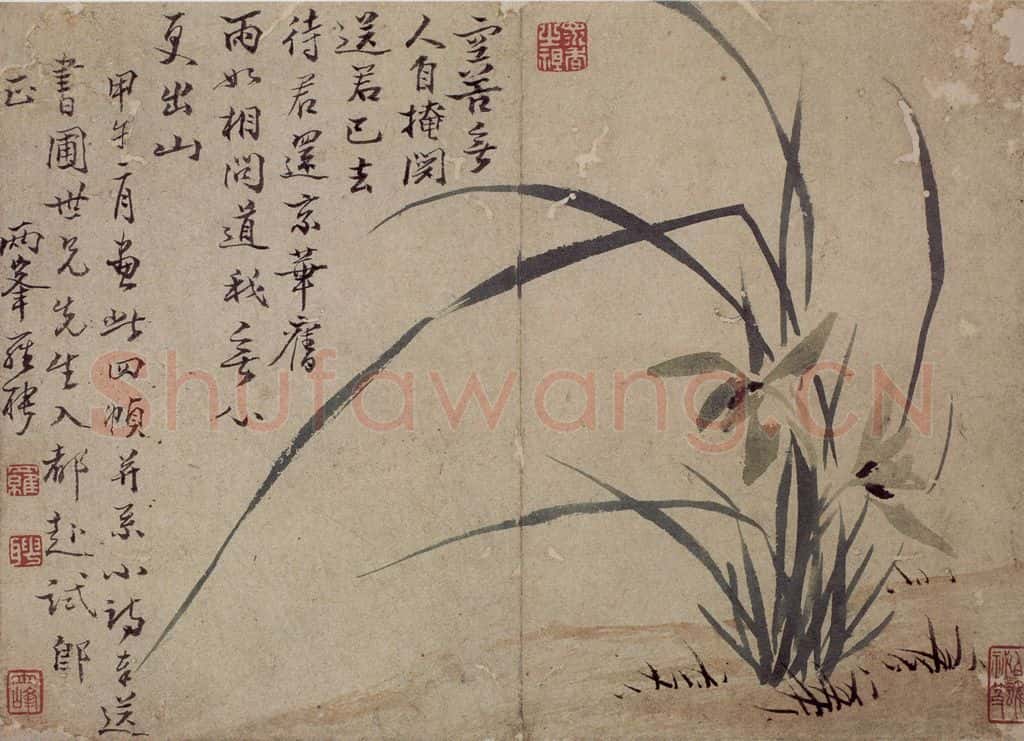 空谷無
人自掩関
送君已去
待君還京華舊
雨如相問道我無心
更出山
甲午二月畫此四幀并系小詩奉送
書圃世兄先生入都赴試即
正
兩峯羅聘
羅
聘
兩峰
Shufawang.CN